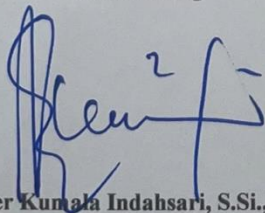 er Kumala Indahsari, S.Si.,